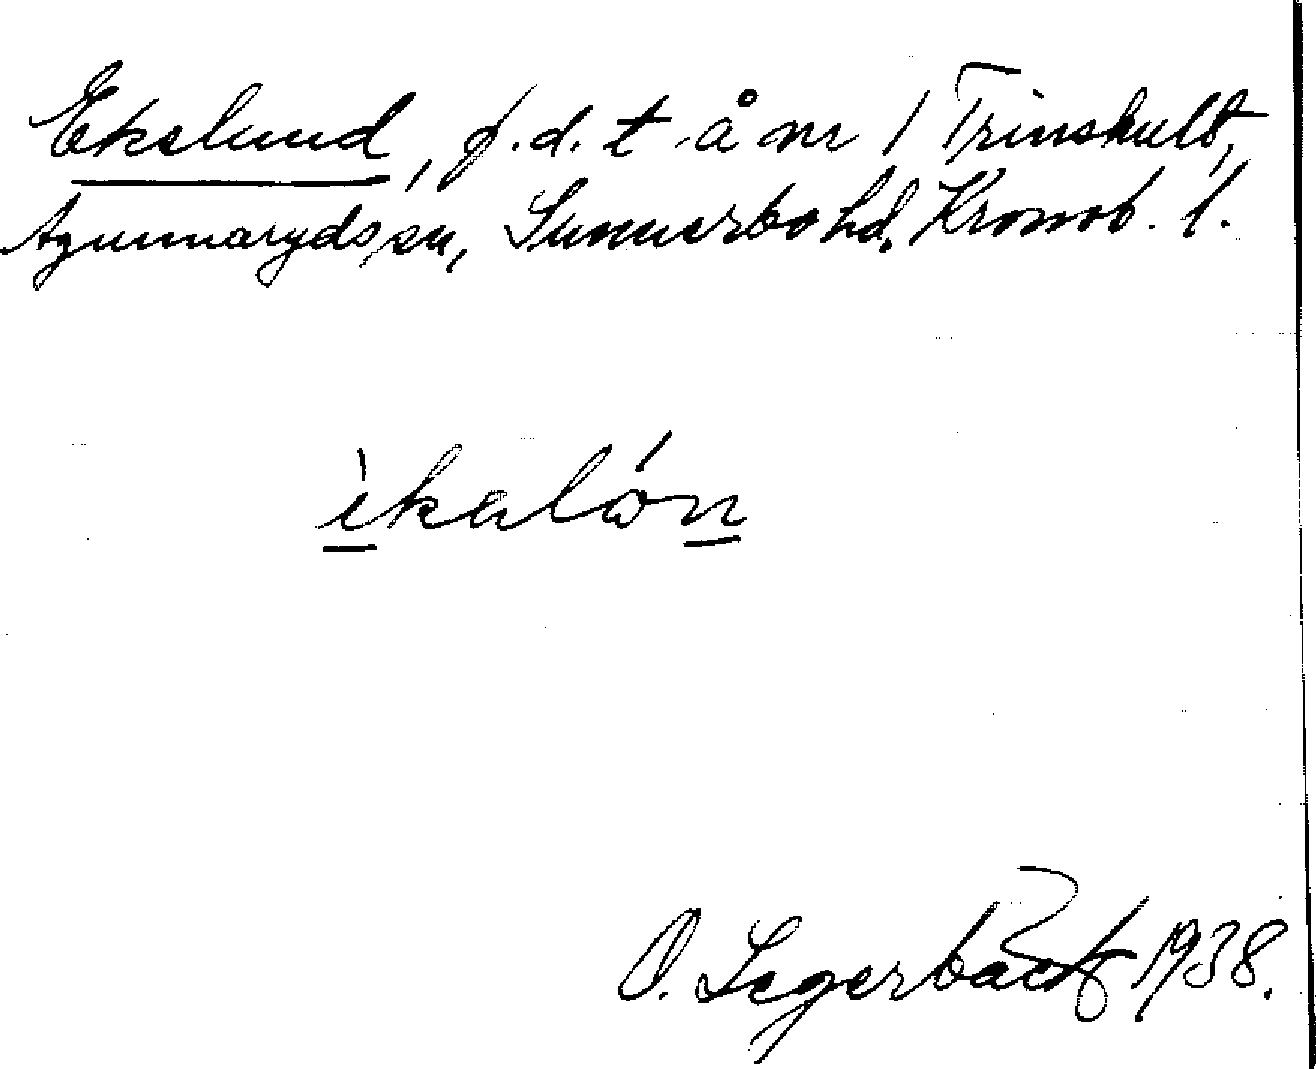 Ekslund, f.d. t. å nr 1 Trinskult,
Agunnaryds sn, Sunnerbo hd, Kronob. l.
ìkslón
O. Segerbäck 1938.